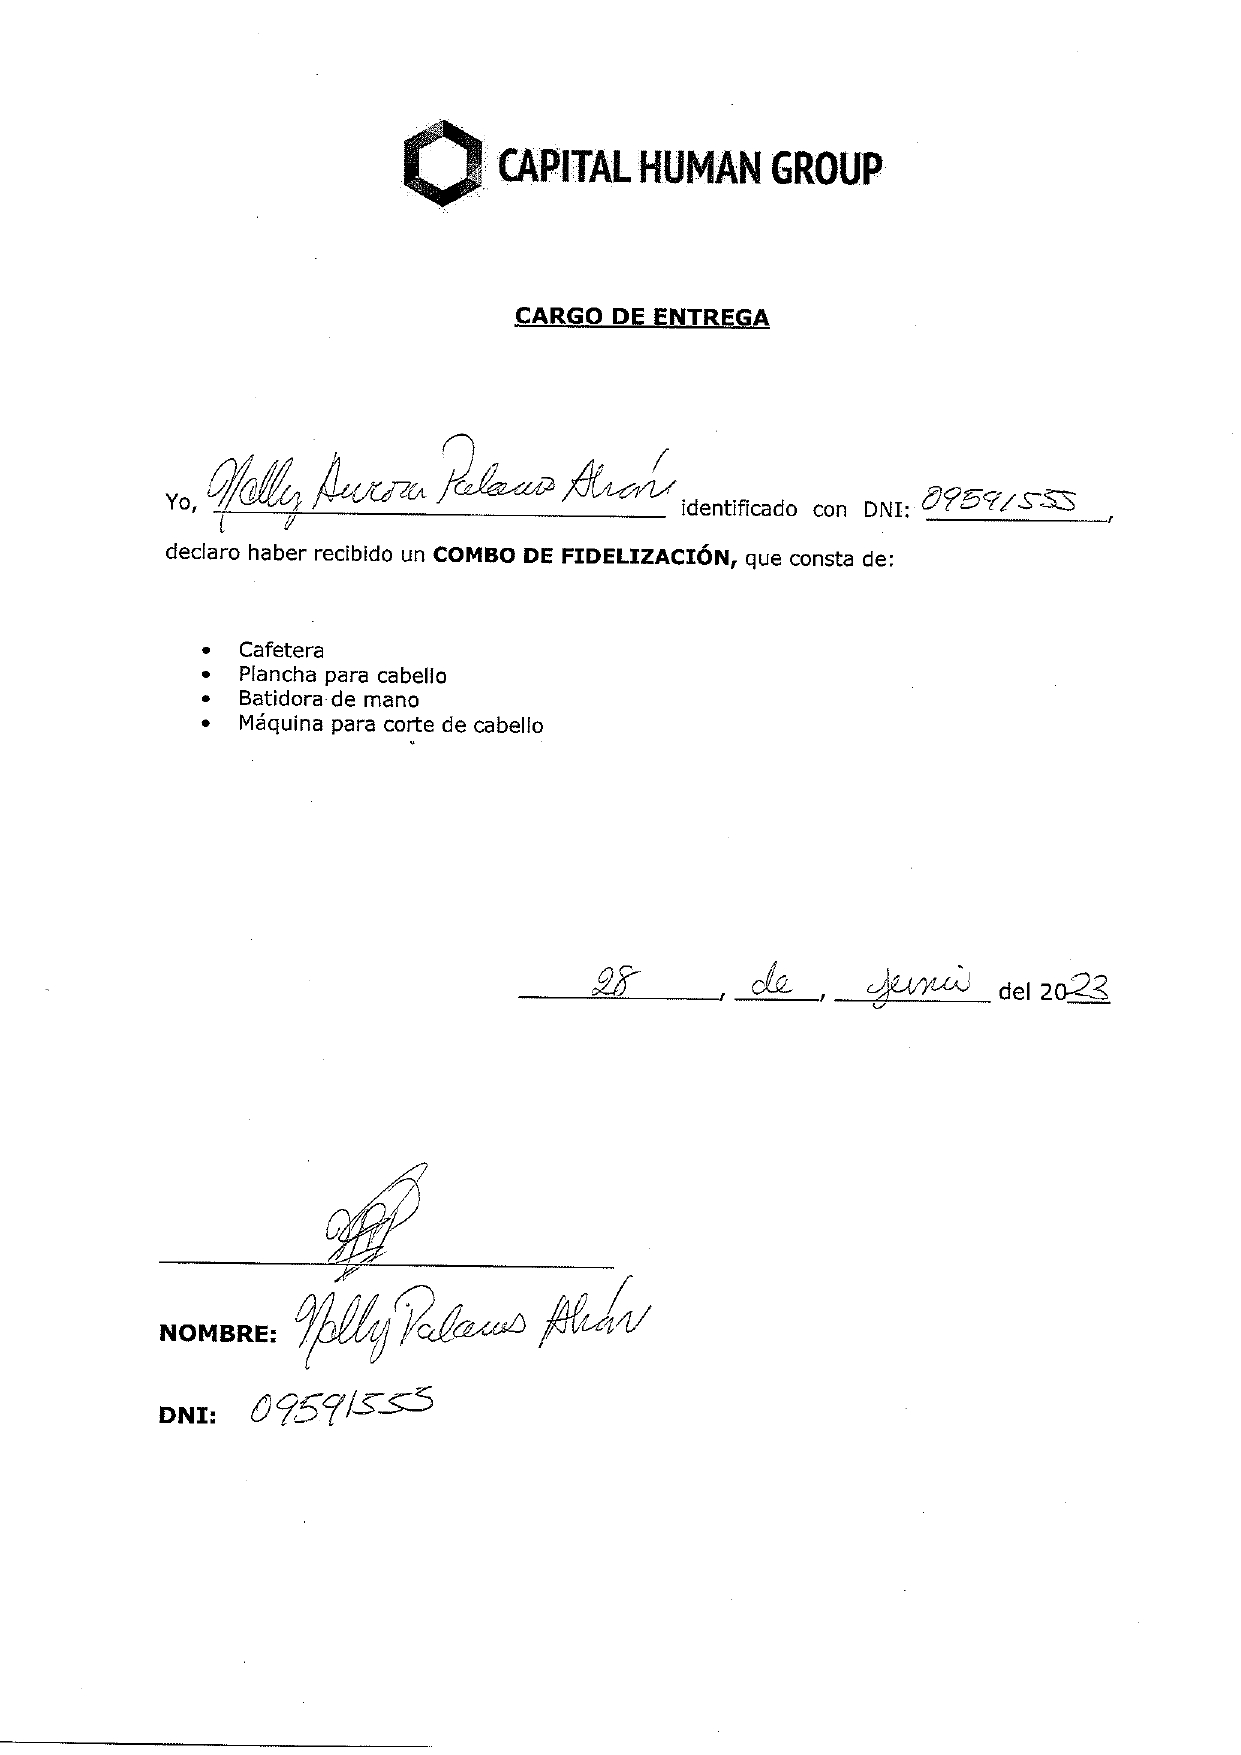 CAPITAL HUMAN GROUP
CARGO DE ENTREGA
Yo, Nelly Aurora Palacios identificado con DNI: 09591555,
declaro haber recibido un COMBO DE FIDELIZACIÓN, que consta de:
• Cafetera
• Plancha para cabello
• Batidora de mano
• Máquina para corte de cabello
28, de, junio del 2023
NOMBRE: Nelly Palacios
DNI: 09591555